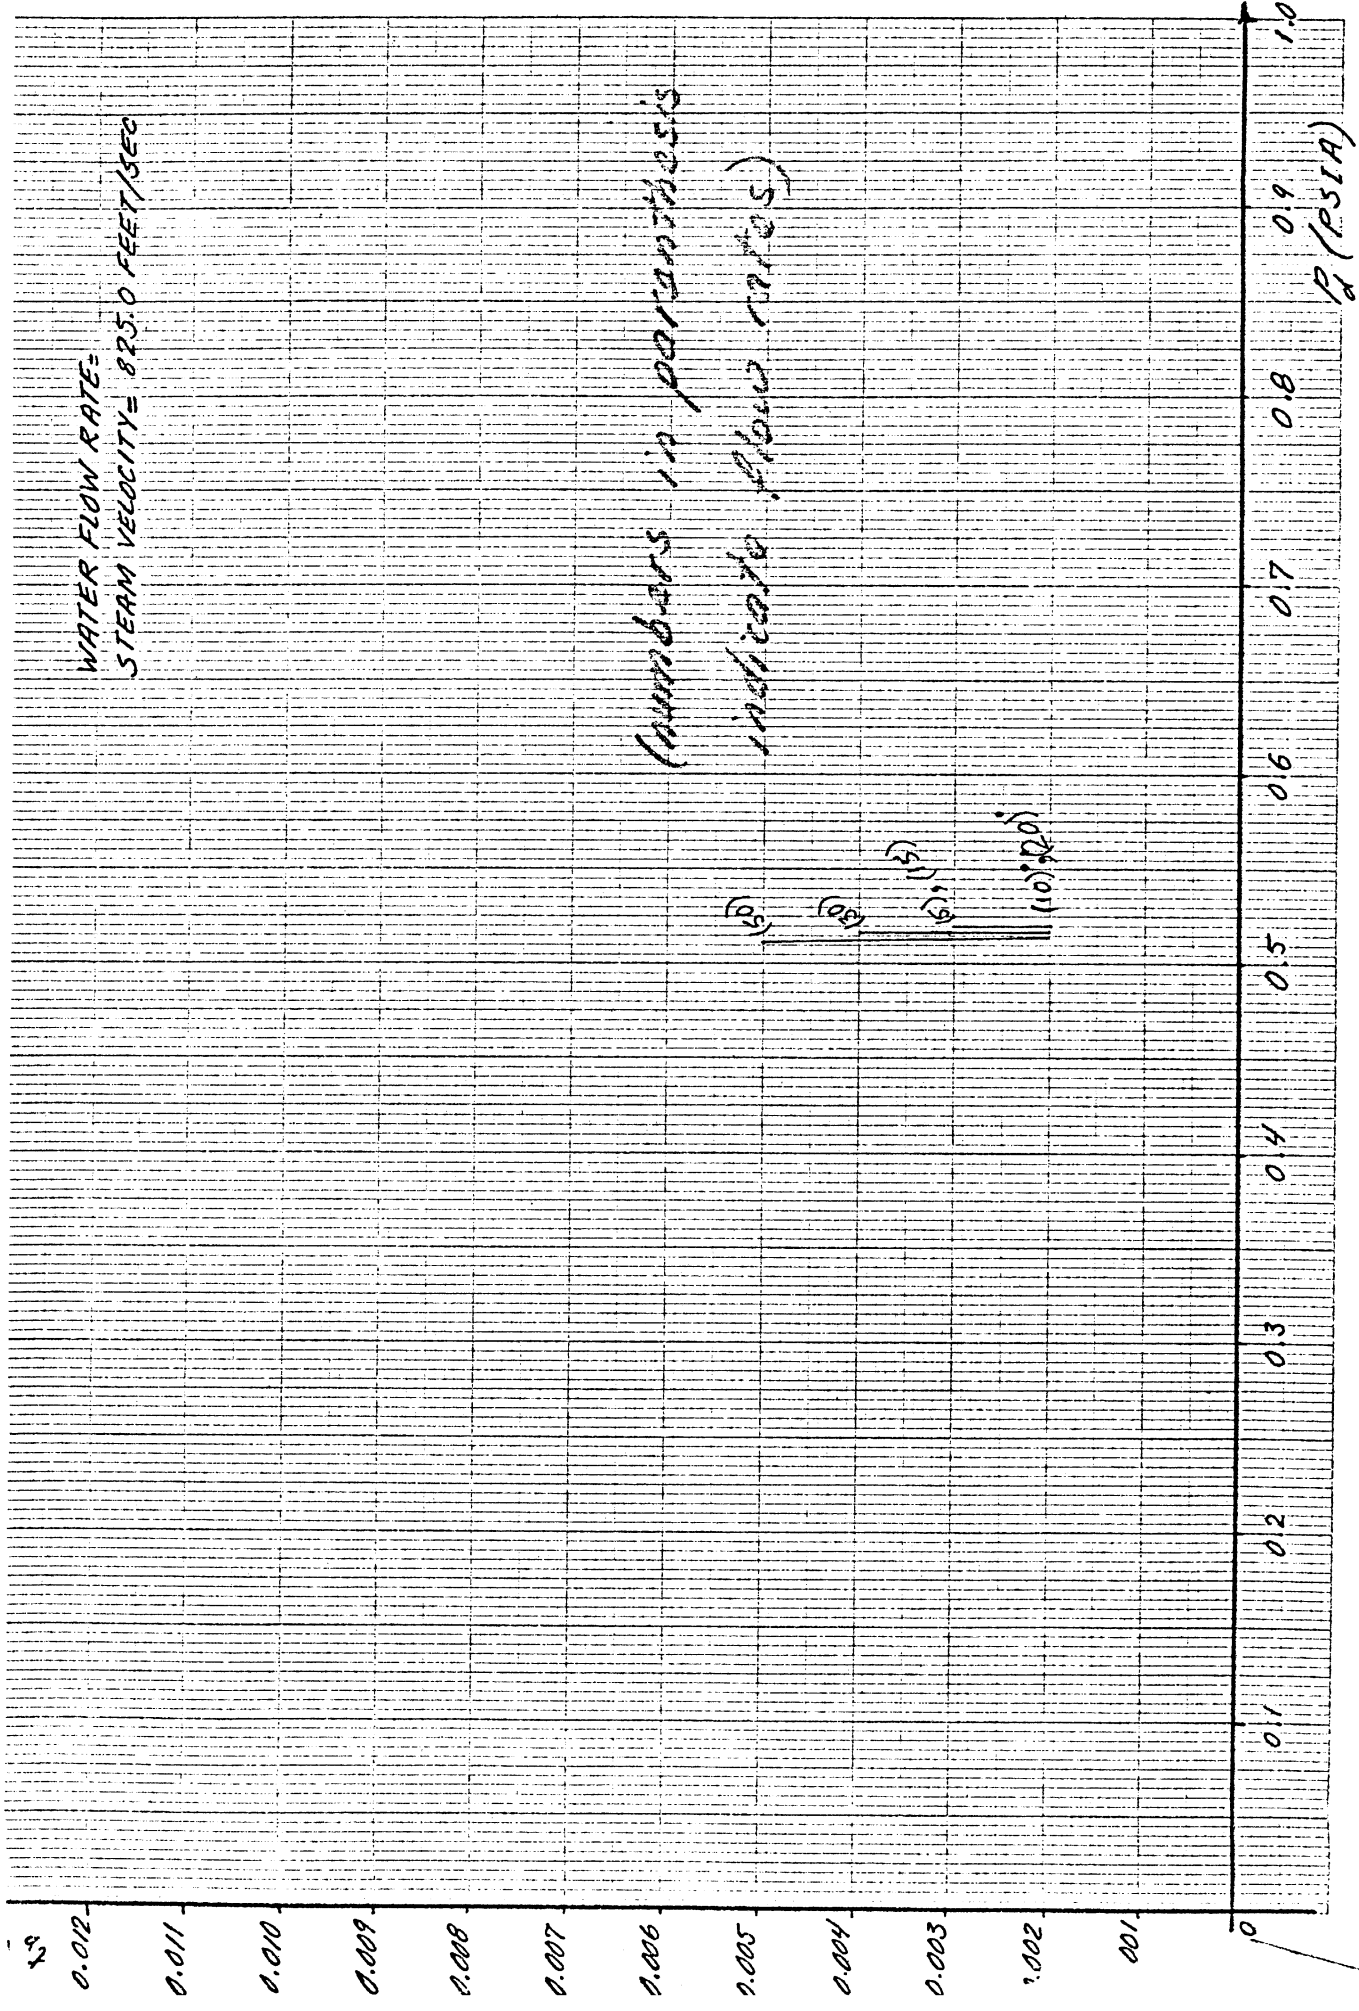 WATER FLOW RATE=
STEAM VELOCITY= 825.0 FEET/SEC
(numbers in paranthesis
indicate flow rates)
(50)
(30)
(5), (15)
(10), (20)
0.012
0.011
0.010
0.009
0.008
0.007
0.006
0.005
0.004
0.003
0.002
001
0
0.1
0.2
0.3
0.4
0.5
0.6
0.7
0.8
0.9
1.0
Pd (PSIA)